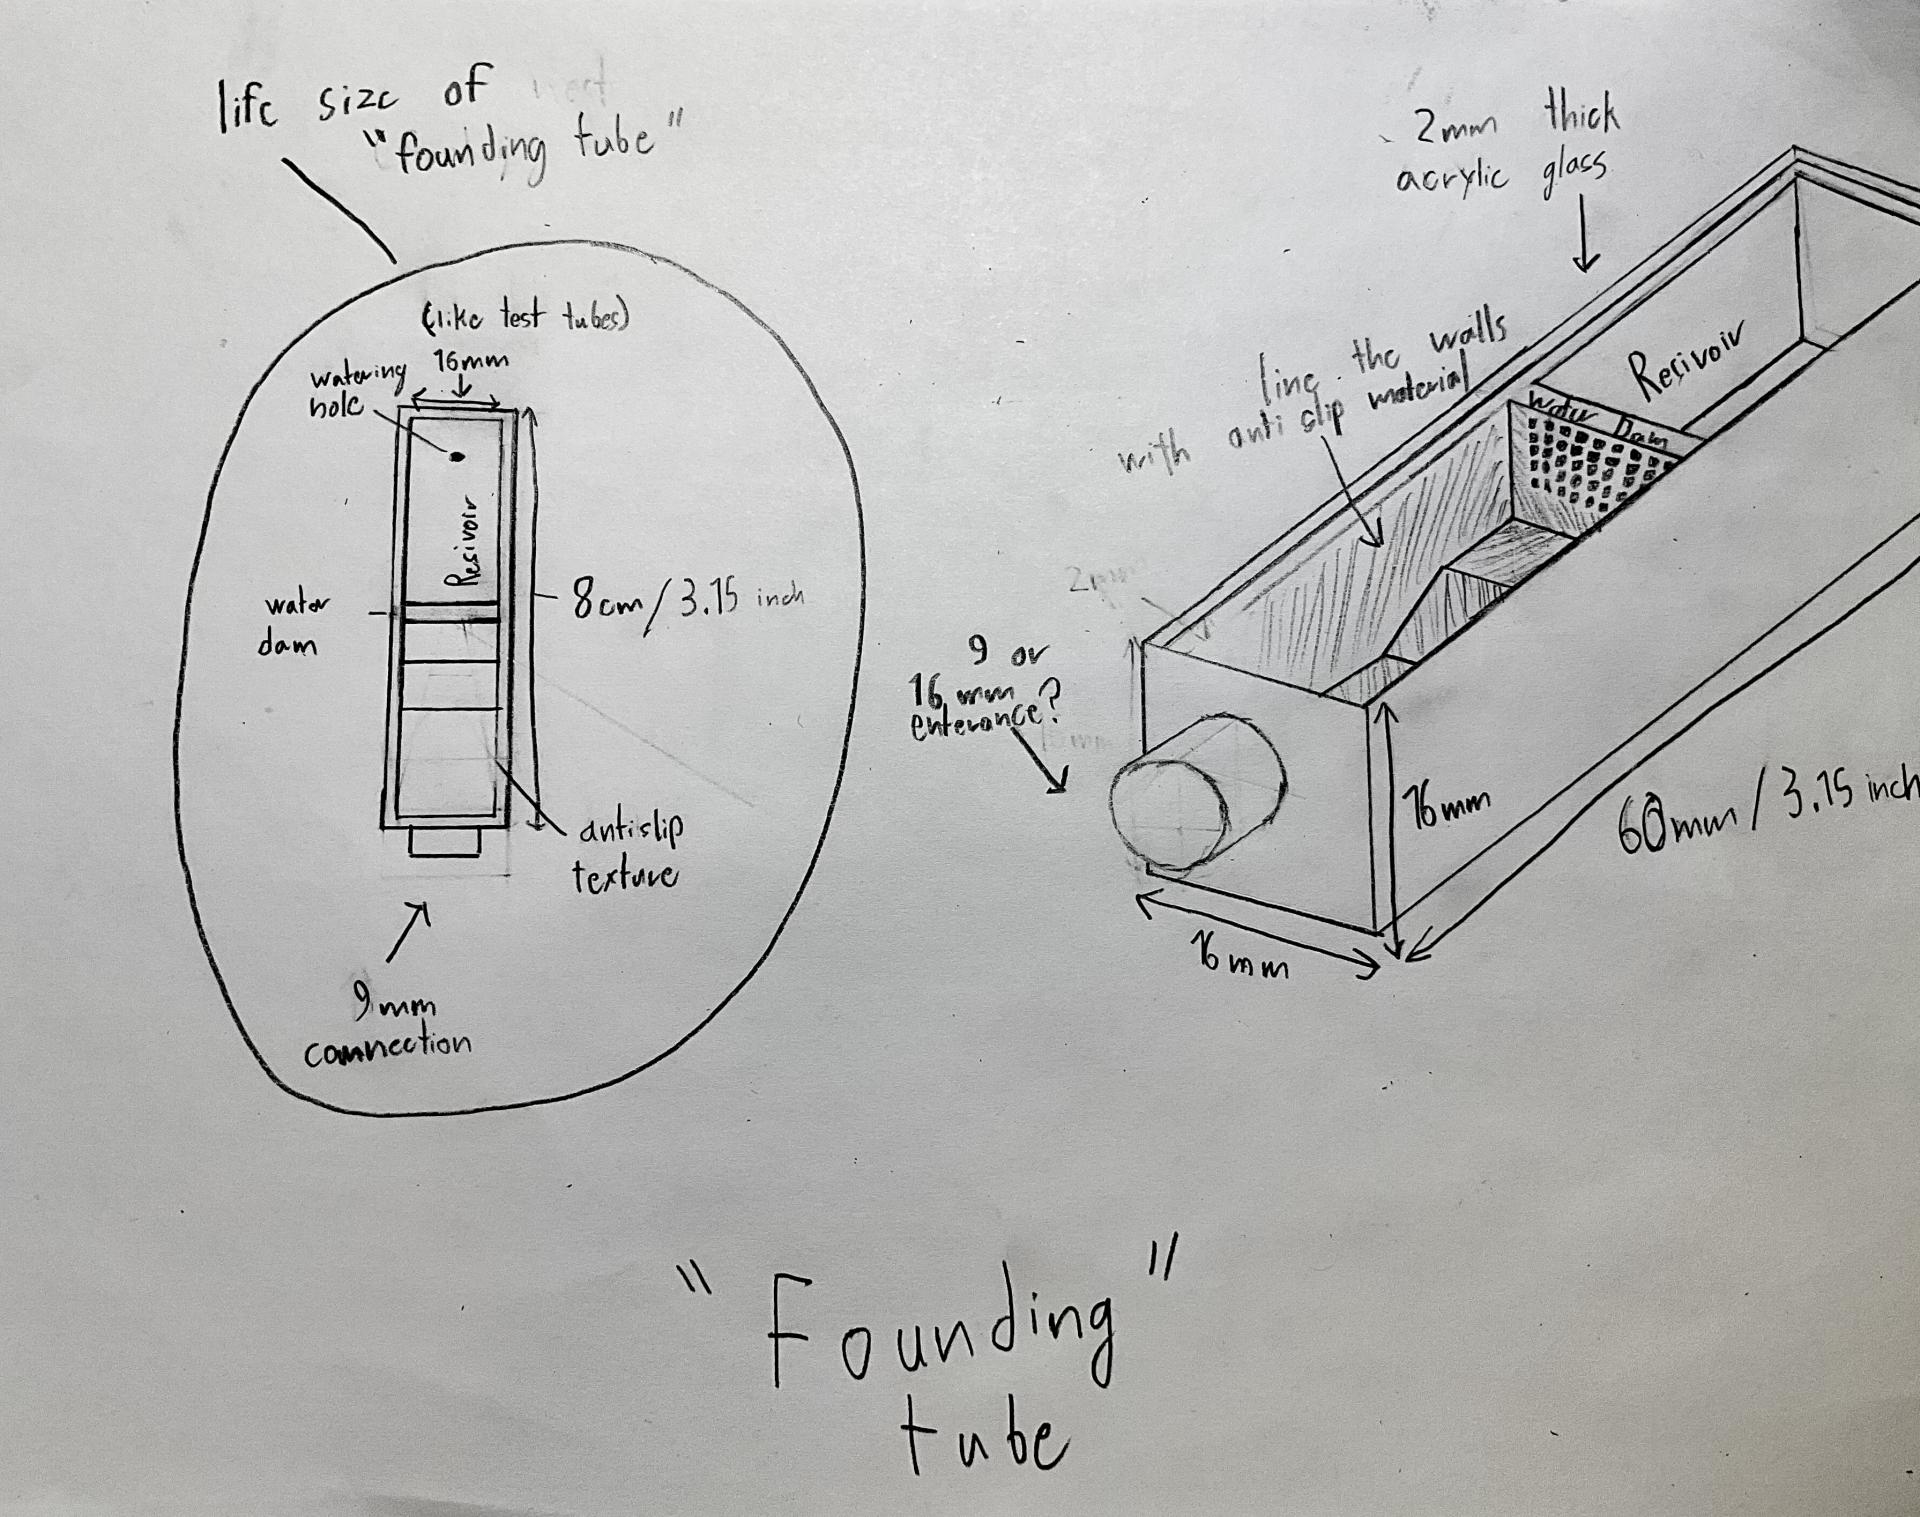 life size of
"founding tube"
(like test tubes)
16mm
watering
hole
Resivoir
water
dam
8cm/3.15 inch
antislip
texture
9mm
connection
2mm thick
acrylic glass
line the walls
with anti slip material
Resivoir
Water Dam
2mm
9 or
16 mm
enterance?
16mm
16mm
60mm/3.15 inch
"Founding"
tube